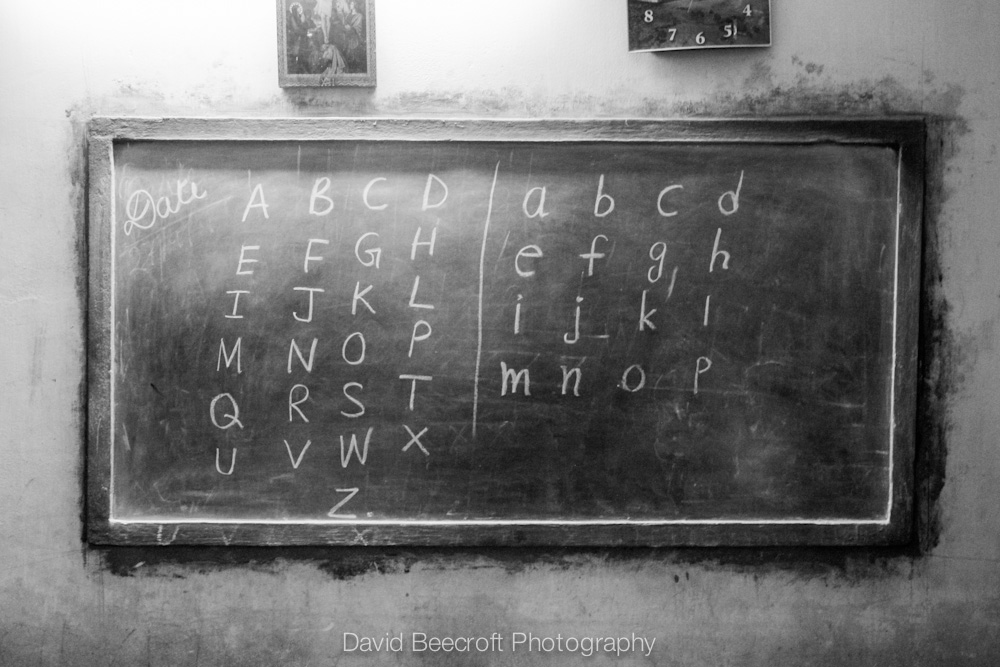 8 7 6 5 4
Date A B C D a b c d
E F G H e f g h
I J K L i j k l
M N O P m n o p
Q R S T
U V W X
Z.
U V X
David Beecroft Photography